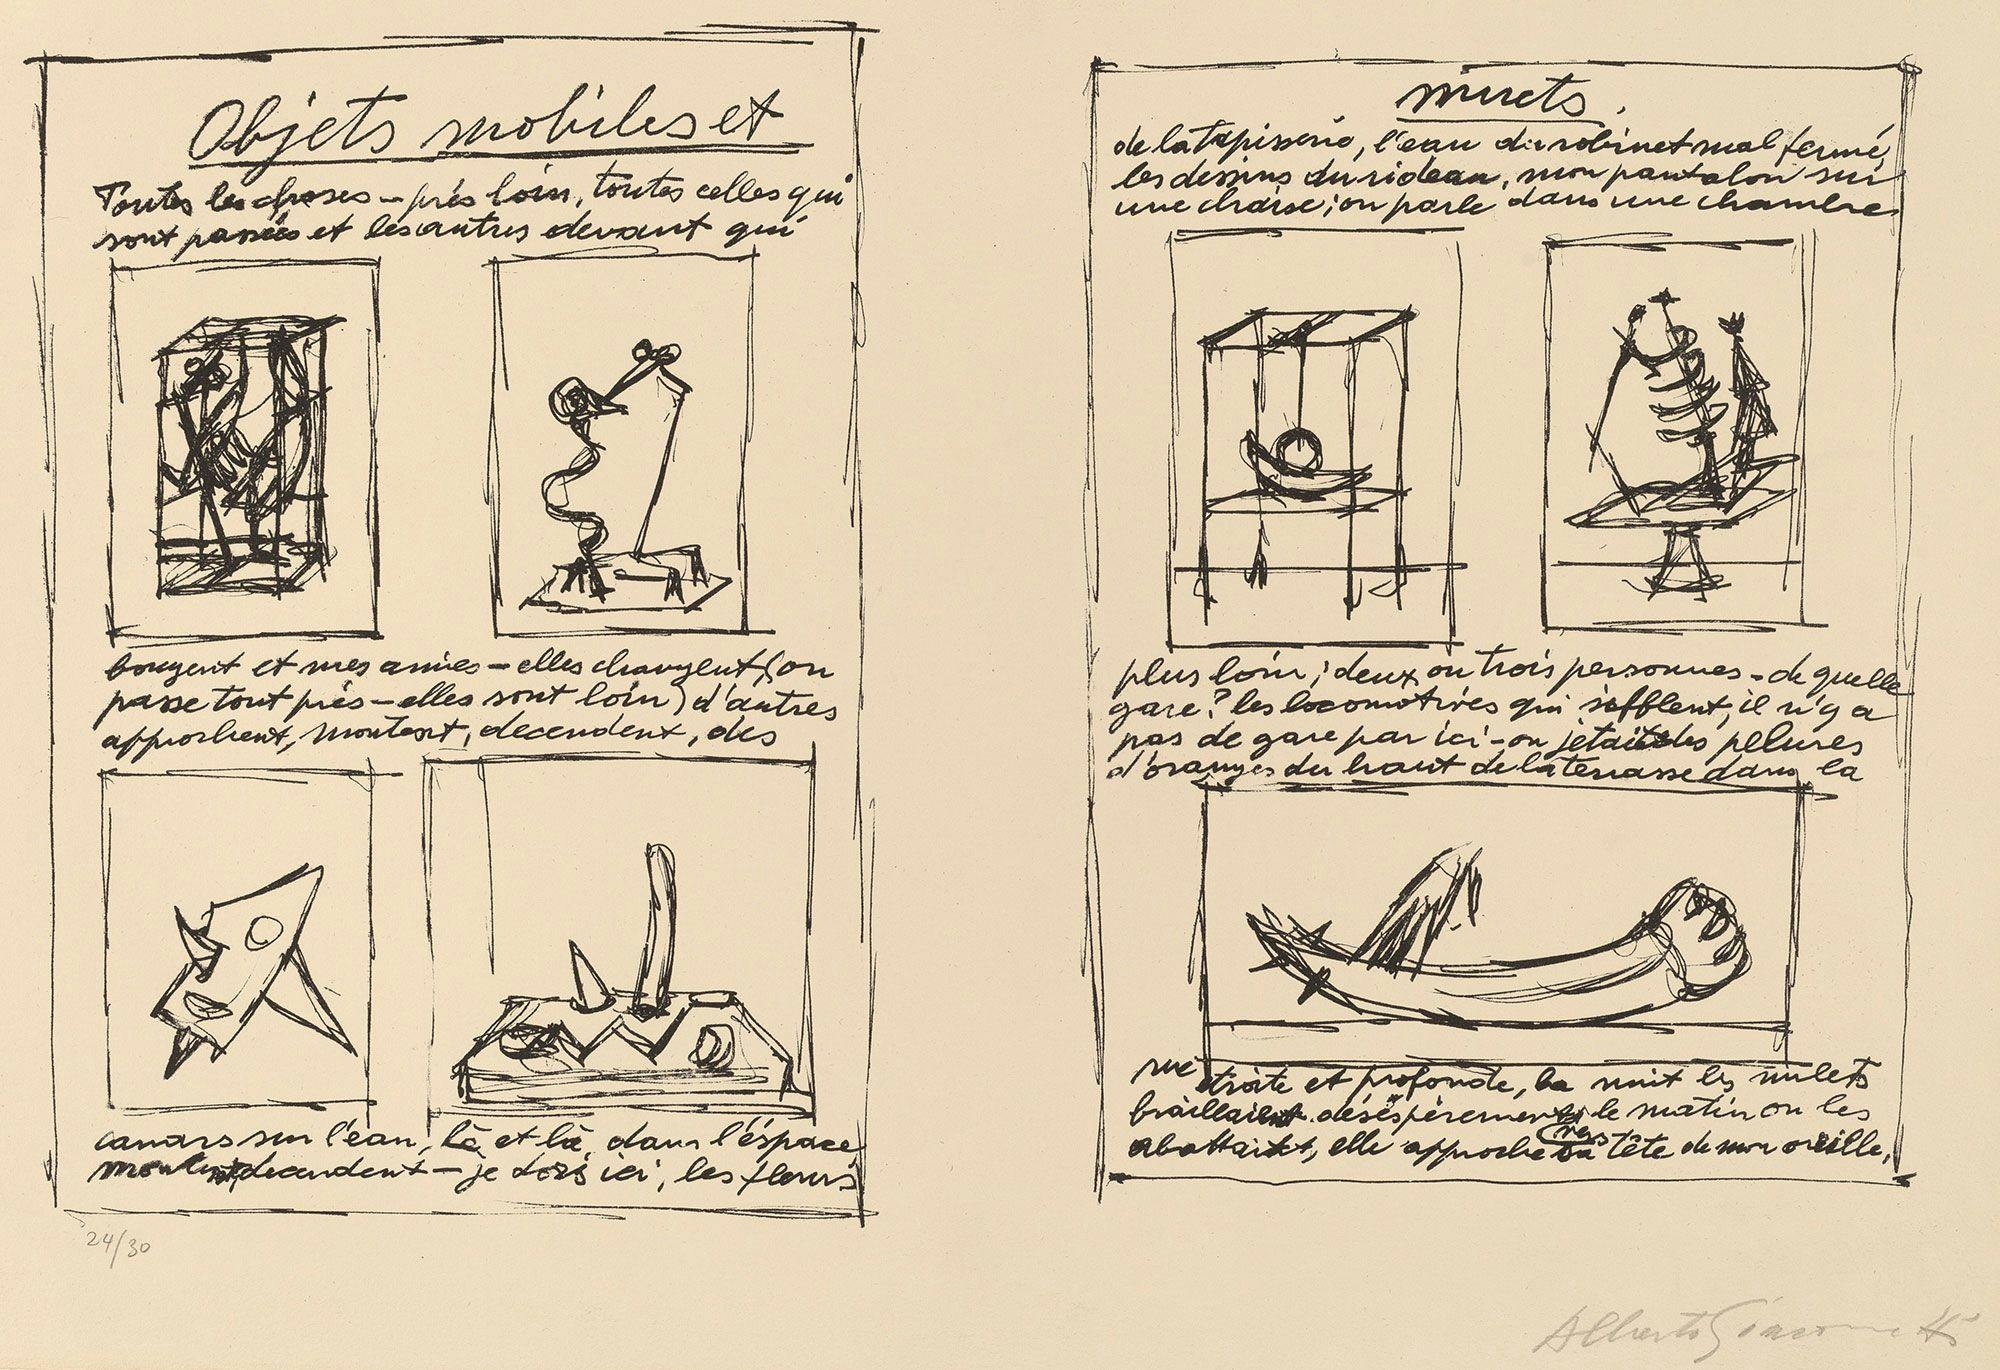 Objets mobiles et
Toutes les choses – près loin, toutes celles qui
sont passées et les autres devant qui
bougent et mes amies – elles changent (on
passe tout près – elles sont loin) d'autres
approchent, montent, decendent, des
canars sur l'eau, là et là, dans l'éspace
montent, decendent – je dors ici, les fleurs
24/30
muets.
de la tapisserie, l'eau du robinet mal fermé,
les dessins du rideau, mon pantalon sur
une chaise; on parle dans une chambre
plus loin; deux ou trois personnes – de quelle
gare? les locomotives qui sifflent, il n'y a
pas de gare par ici – on jetait des pelures
d'oranges du haut de la terrasse dans la
rue étroite et profonde, la nuit les mulets
braillaient désèspèrement, le matin on les
abattait, elle approche sa tête de mon oreille,
Alberto Giacometti